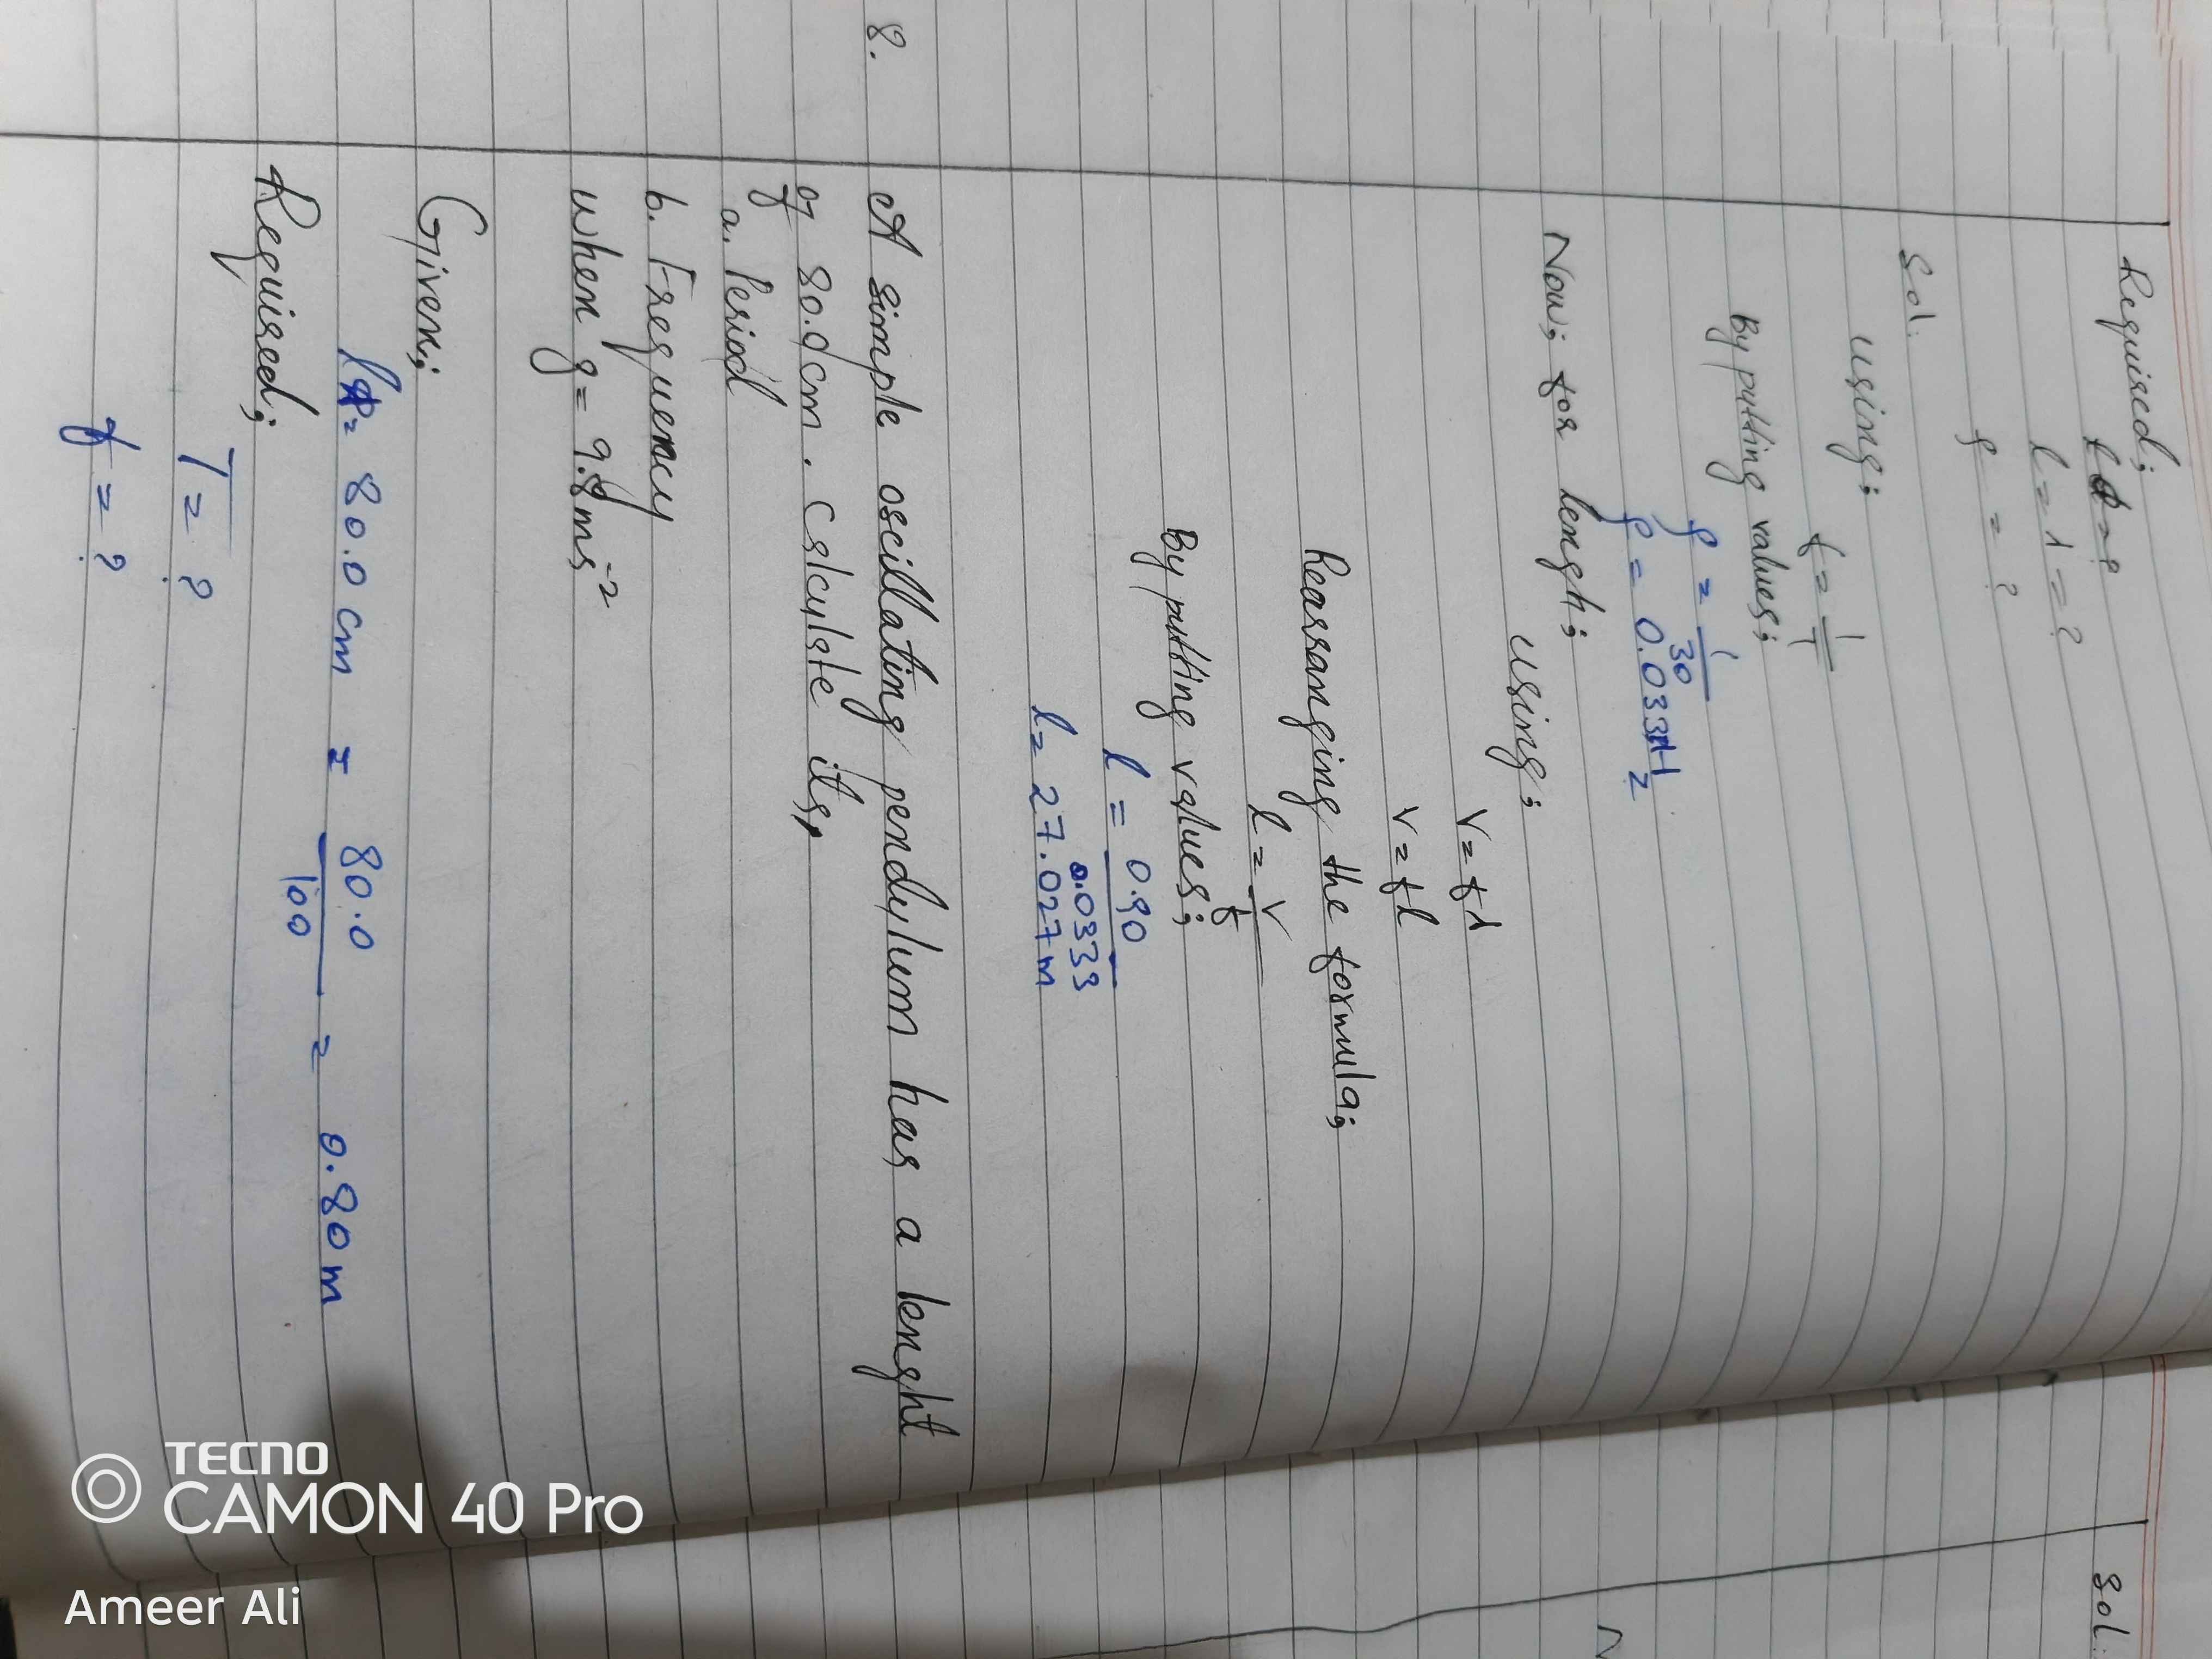 Required;
l = λ = ?
f = ?
Sol:
using;
f = 1/T
By putting values;
f = 1/30
f = 0.033Hz
Now; for lengh;
using;
v = fλ
v = fl
Rearranging the formula;
l = v/f
By putting values;
l = 0.90/0.0333
l = 27.027m
8. A simple oscillating pendulum has a lenght
of 80.0cm. Calculate its,
a. Period
b. Frequency
when g = 9.8ms⁻²
Given;
l = 80.0 cm = 80.0/100 = 0.80m
Required;
T = ?
f = ?
Sol:
N
TECNO
CAMON 40 Pro
Ameer Ali